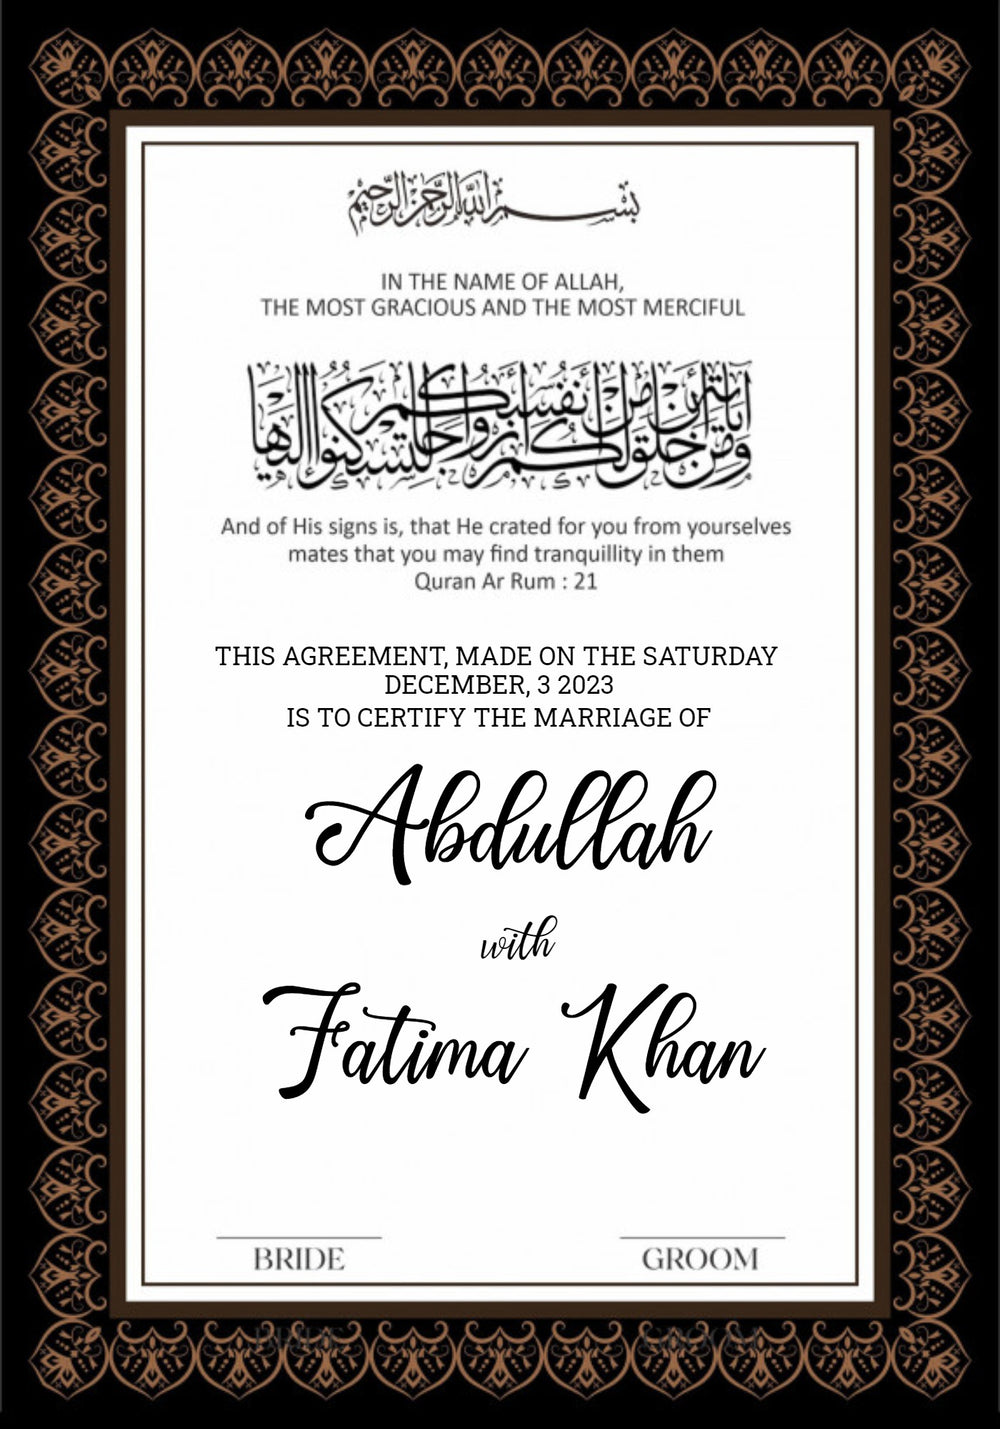 بسم الله الرحمن الرحيم
IN THE NAME OF ALLAH,
THE MOST GRACIOUS AND THE MOST MERCIFUL
ومن آياته أن خلق لكم من أنفسكم أزواجا لتسكنوا إليها
And of His signs is, that He crated for you from yourselves
mates that you may find tranquillity in them
Quran Ar Rum : 21
THIS AGREEMENT, MADE ON THE SATURDAY
DECEMBER, 3 2023
IS TO CERTIFY THE MARRIAGE OF
Abdullah
with
Fatima Khan
BRIDE GROOM
BRIDE GROOM